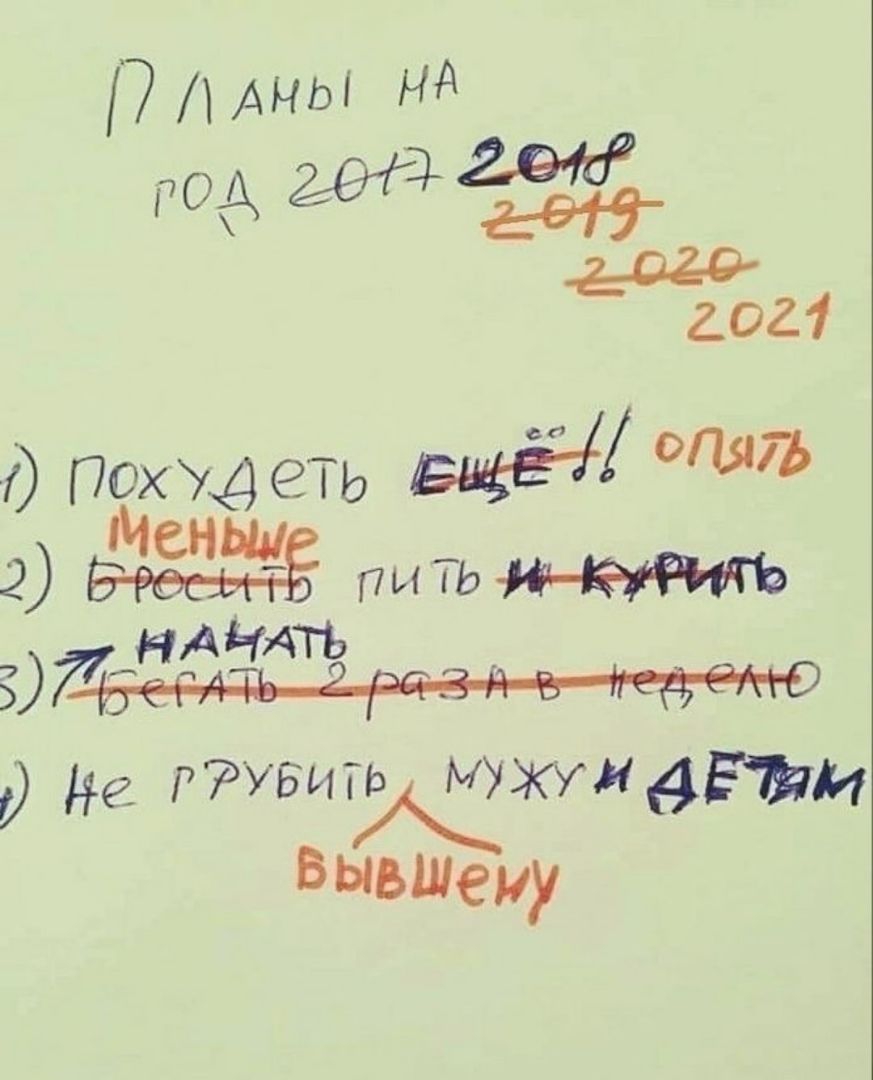 ПЛАНЫ НА
ГОД 2017 2018
2019
2020
2021
1) ПОХУДЕТЬ ЕЩЁ!! ОПЯТЬ
МЕНЬШЕ
2) БРОСИТЬ ПИТЬ И КУРИТЬ
НАЧАТЬ
3) БЕГАТЬ 2 РАЗА В НЕДЕЛЮ
4) НЕ ГРУБИТЬ МУЖУ И ДЕТЯМ
БЫВШЕМУ